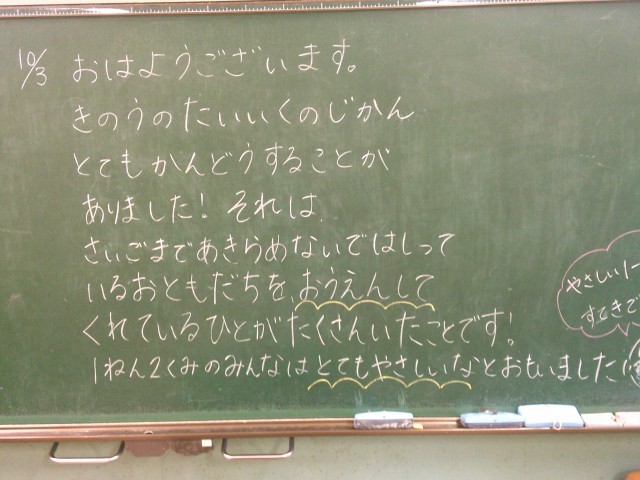 10/3 おはようございます。
きのうのたいいくのじかん
とてもかんどうすることが
ありました！それは、
さいごまであきらめないではしって
いるおともだちを、おうえんして
くれているひとがたくさんいたことです！
1ねん2くみのみんなはとてもやさしいなとおもいました
やさしい
すてきで